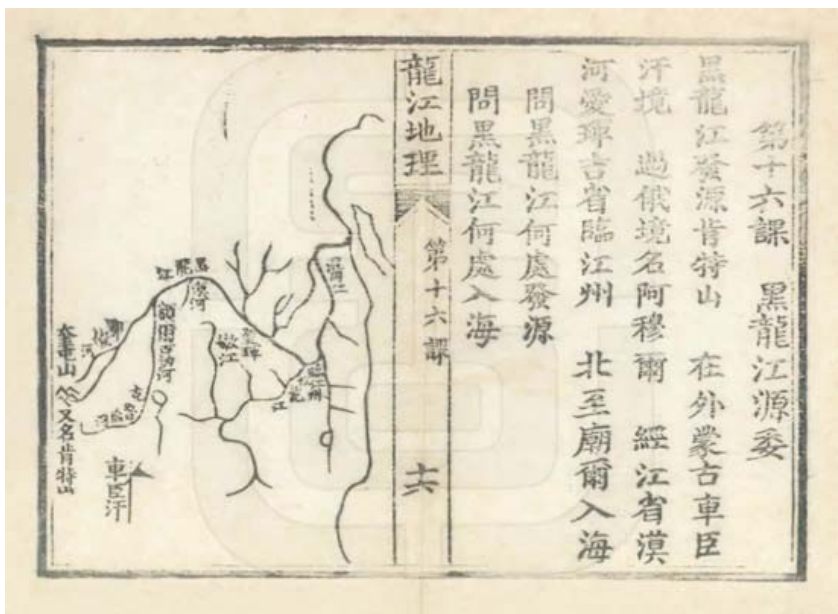 第十六課　黑龍江源委
黑龍江發源肯特山　在外蒙古車臣
汗境　過俄境名阿穆爾　經江省漠
河愛琿吉省臨江州　北至廟爾入海
問黑龍江何處發源
問黑龍江何處入海
龍江地理
第十六課
十六
黑龍江
漠河
額爾古訥河
愛琿
嫩江
臨江州
車臣汗
又名肯特山